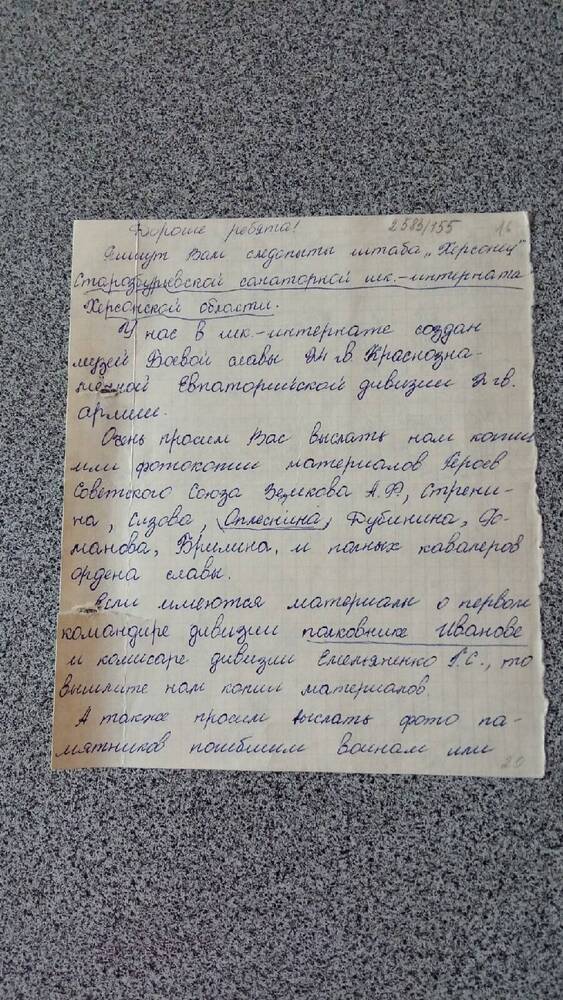 Дорогие ребята! 2583/155 16
Пишут Вам следопыты штаба „Херсонец"
Старозбурьевской санаторной шк.-интерната
Херсонской области.
У нас в шк.-интернате создан
музей Боевой славы 24 гв. Краснозна-
мённой Евпаторийской дивизии 2 гв.
армии.
Очень просим Вас выслать нам копии
или фотокопии материалов Героев
Советского Союза Зелькова А.Ф, Стрени-
на, Сизова, Оплеснина, Дубинина, Фо-
манова, Брилина, и полных кавалеров
ордена славы.
Если имеются материалы о первом
командире дивизии полковнике Иванове
и комисаре дивизии Емельяненко Г.С., то
вышлите нам копии материалов.
А также просим выслать фото па-
мятников погибшим воинам или
20